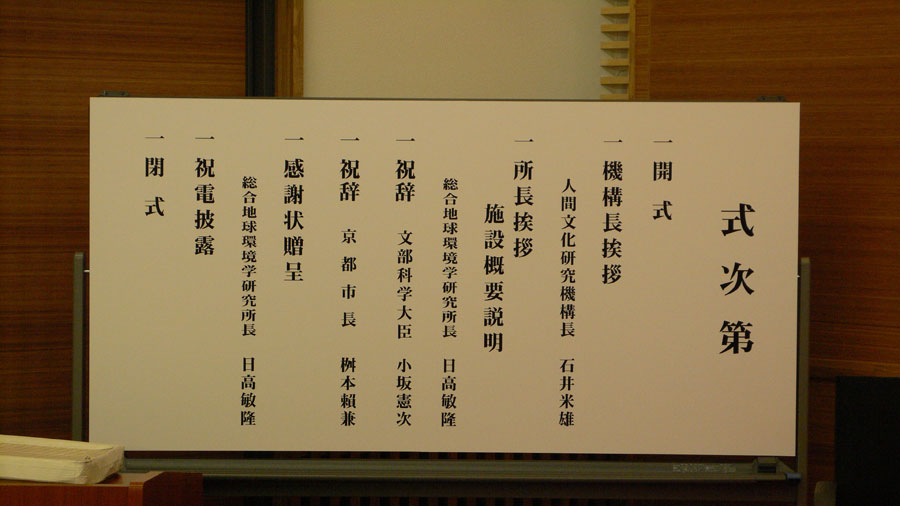 式次第
一開式
一機構長挨拶
人間文化研究機構長 石井米雄
一所長挨拶
施設概要説明
総合地球環境学研究所長 日高敏隆
一祝辞 文部科学大臣 小坂憲次
一祝辞 京都市長 桝本賴兼
一感謝状贈呈
総合地球環境学研究所長 日高敏隆
一祝電披露
一閉式